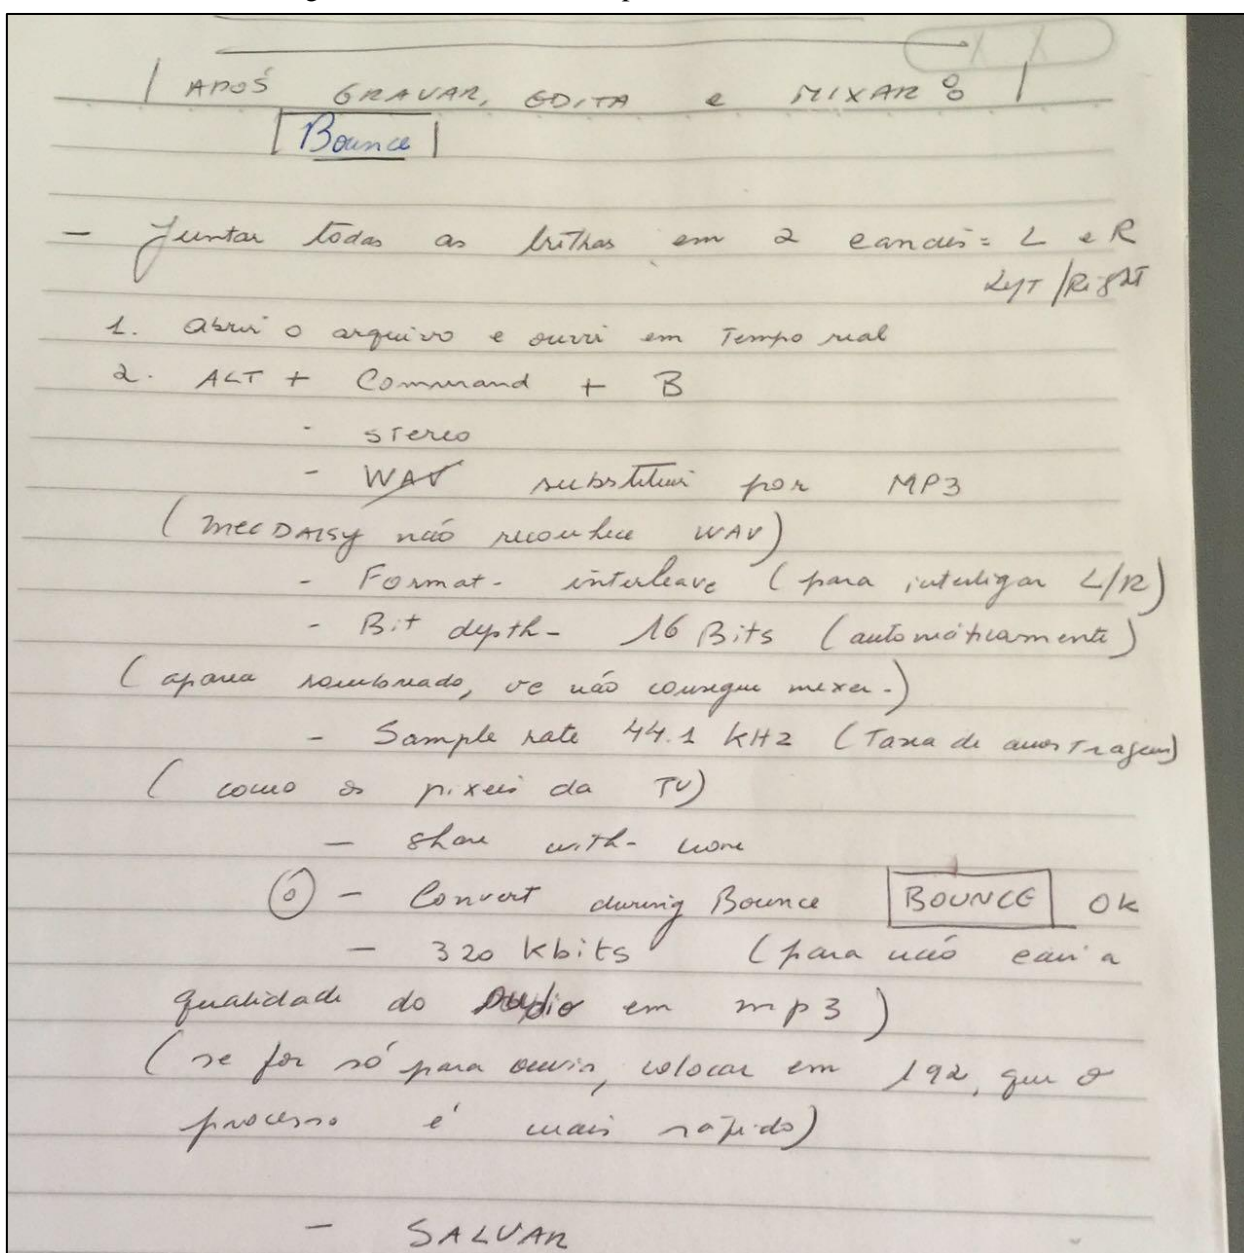 APOŚ GRAVAR, EDITA e MIXAR %
Bounce
- Juntar todas as trilhas em 2 canais = L e R
Left / Right
1. Abrir o arquivo e ouvir em Tempo real
2. ALT + Command + B
- stereo
- WAV substituir por MP3
(mecDAISY não reconhece WAV)
- Format - interleave (para interligar L/R)
- Bit depth - 16 Bits (automáticamente)
(aparece sombreado, vc não consegue mexer.)
- Sample rate 44.1 kHz (Taxa de amostragem)
(como os pixeis da TV)
- share with - none
- Convert during Bounce BOUNCE OK
- 320 kbits (para não cair a
qualidade do audio em mp3)
(se for só para ouvir, colocar em 192, que o
processo é mais rápido)
- SALVAR